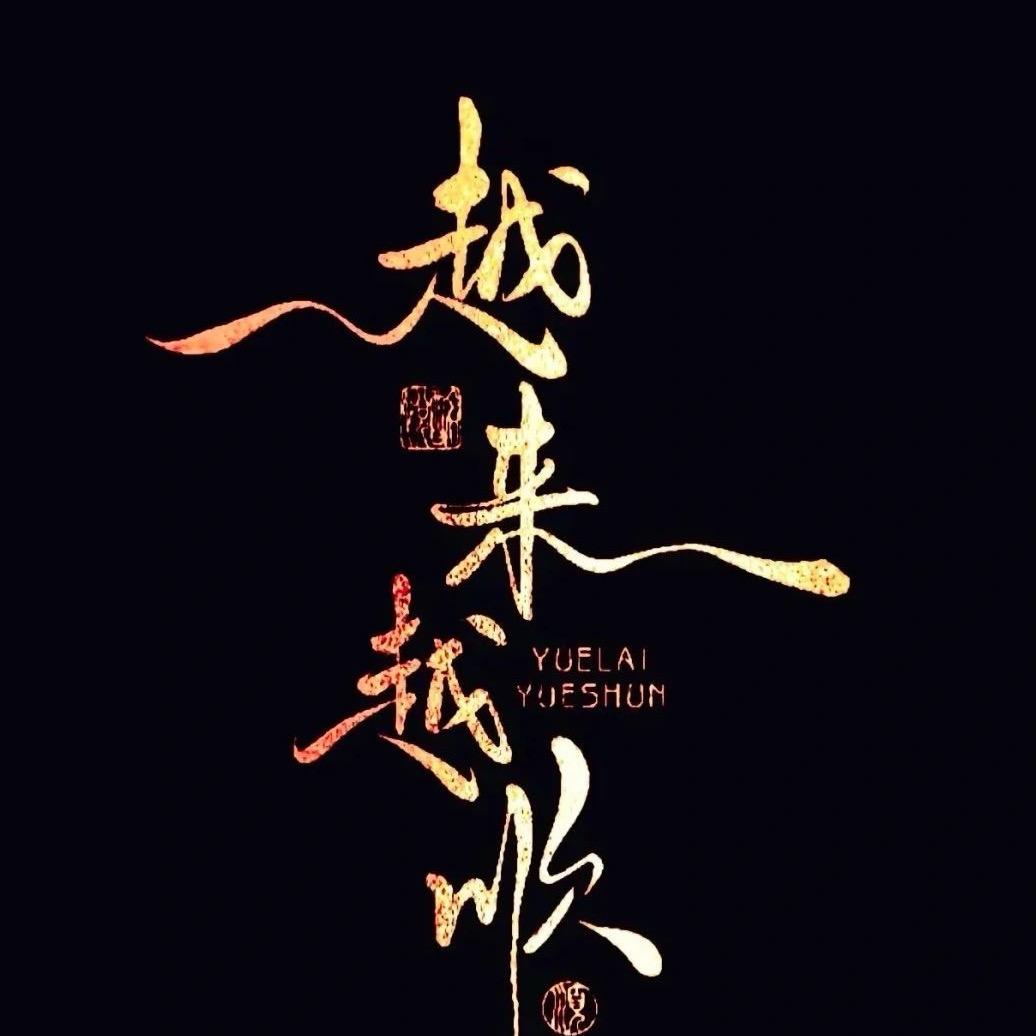 越来越顺
YUELAI
YUESHUN
顺